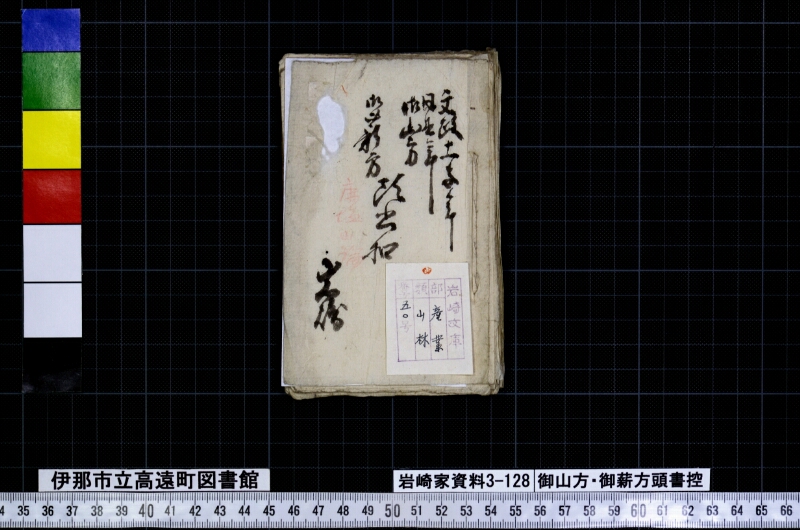 文政十一子年
同丑年
御山方
御薪方
頭書扣
岩崎文庫
部 産業
類 山林
番 五〇号
伊那市立高遠町図書館
岩崎家資料3-128
御山方・御薪方頭書控
34 35 36 37 38 39 40 41 42 43 44 45 46 47 48 49 50 51 52 53 54 55 56 57 58 59 60 61 62 63 64 65 66